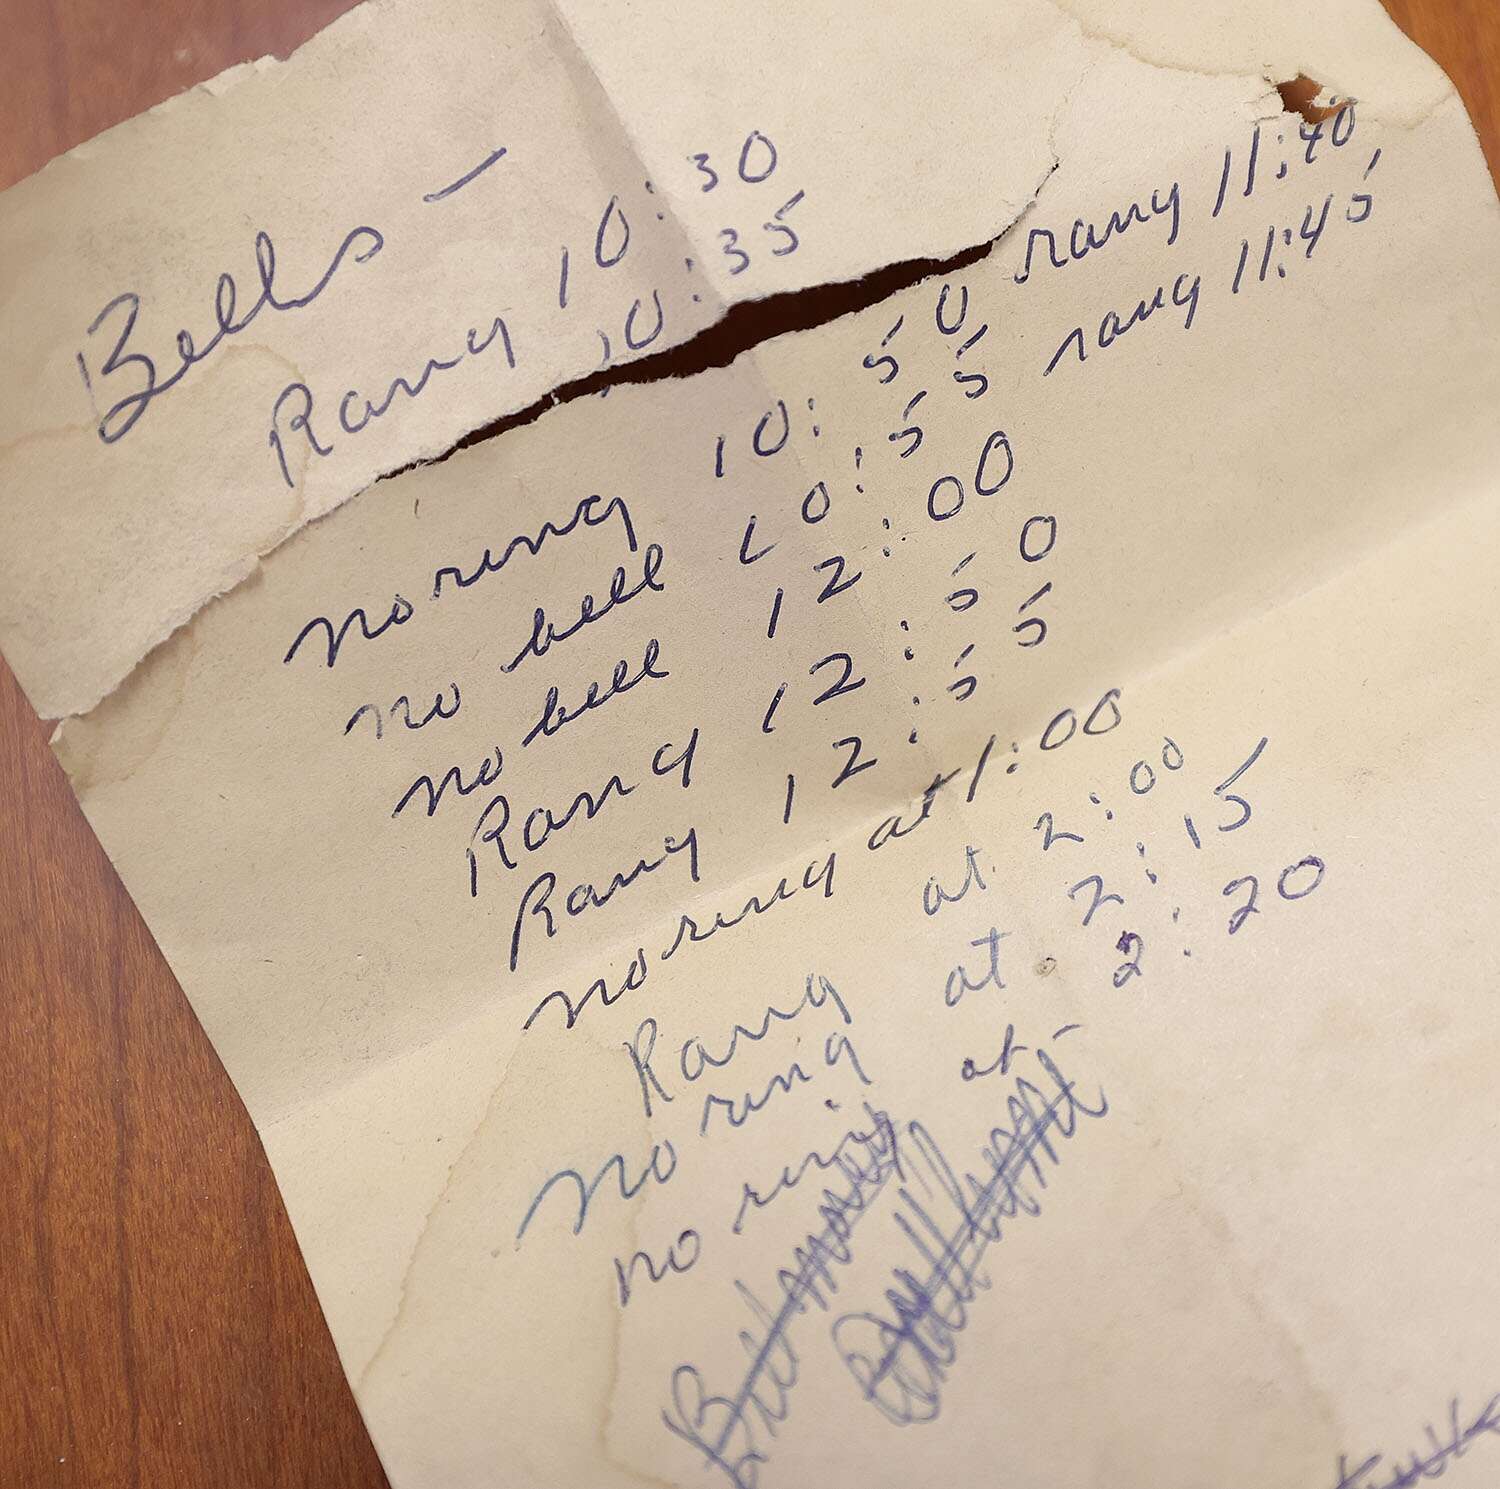 Bells -
Rang 10:30
10:35
no ring 10:50 rang 11:40
no bell 10:55 rang 11:45
no bell 12:00
Rang 12:50
Rang 12:55
no ring at 1:00
Rang at 2:00
no ring at 2:15
no ring at 2:20